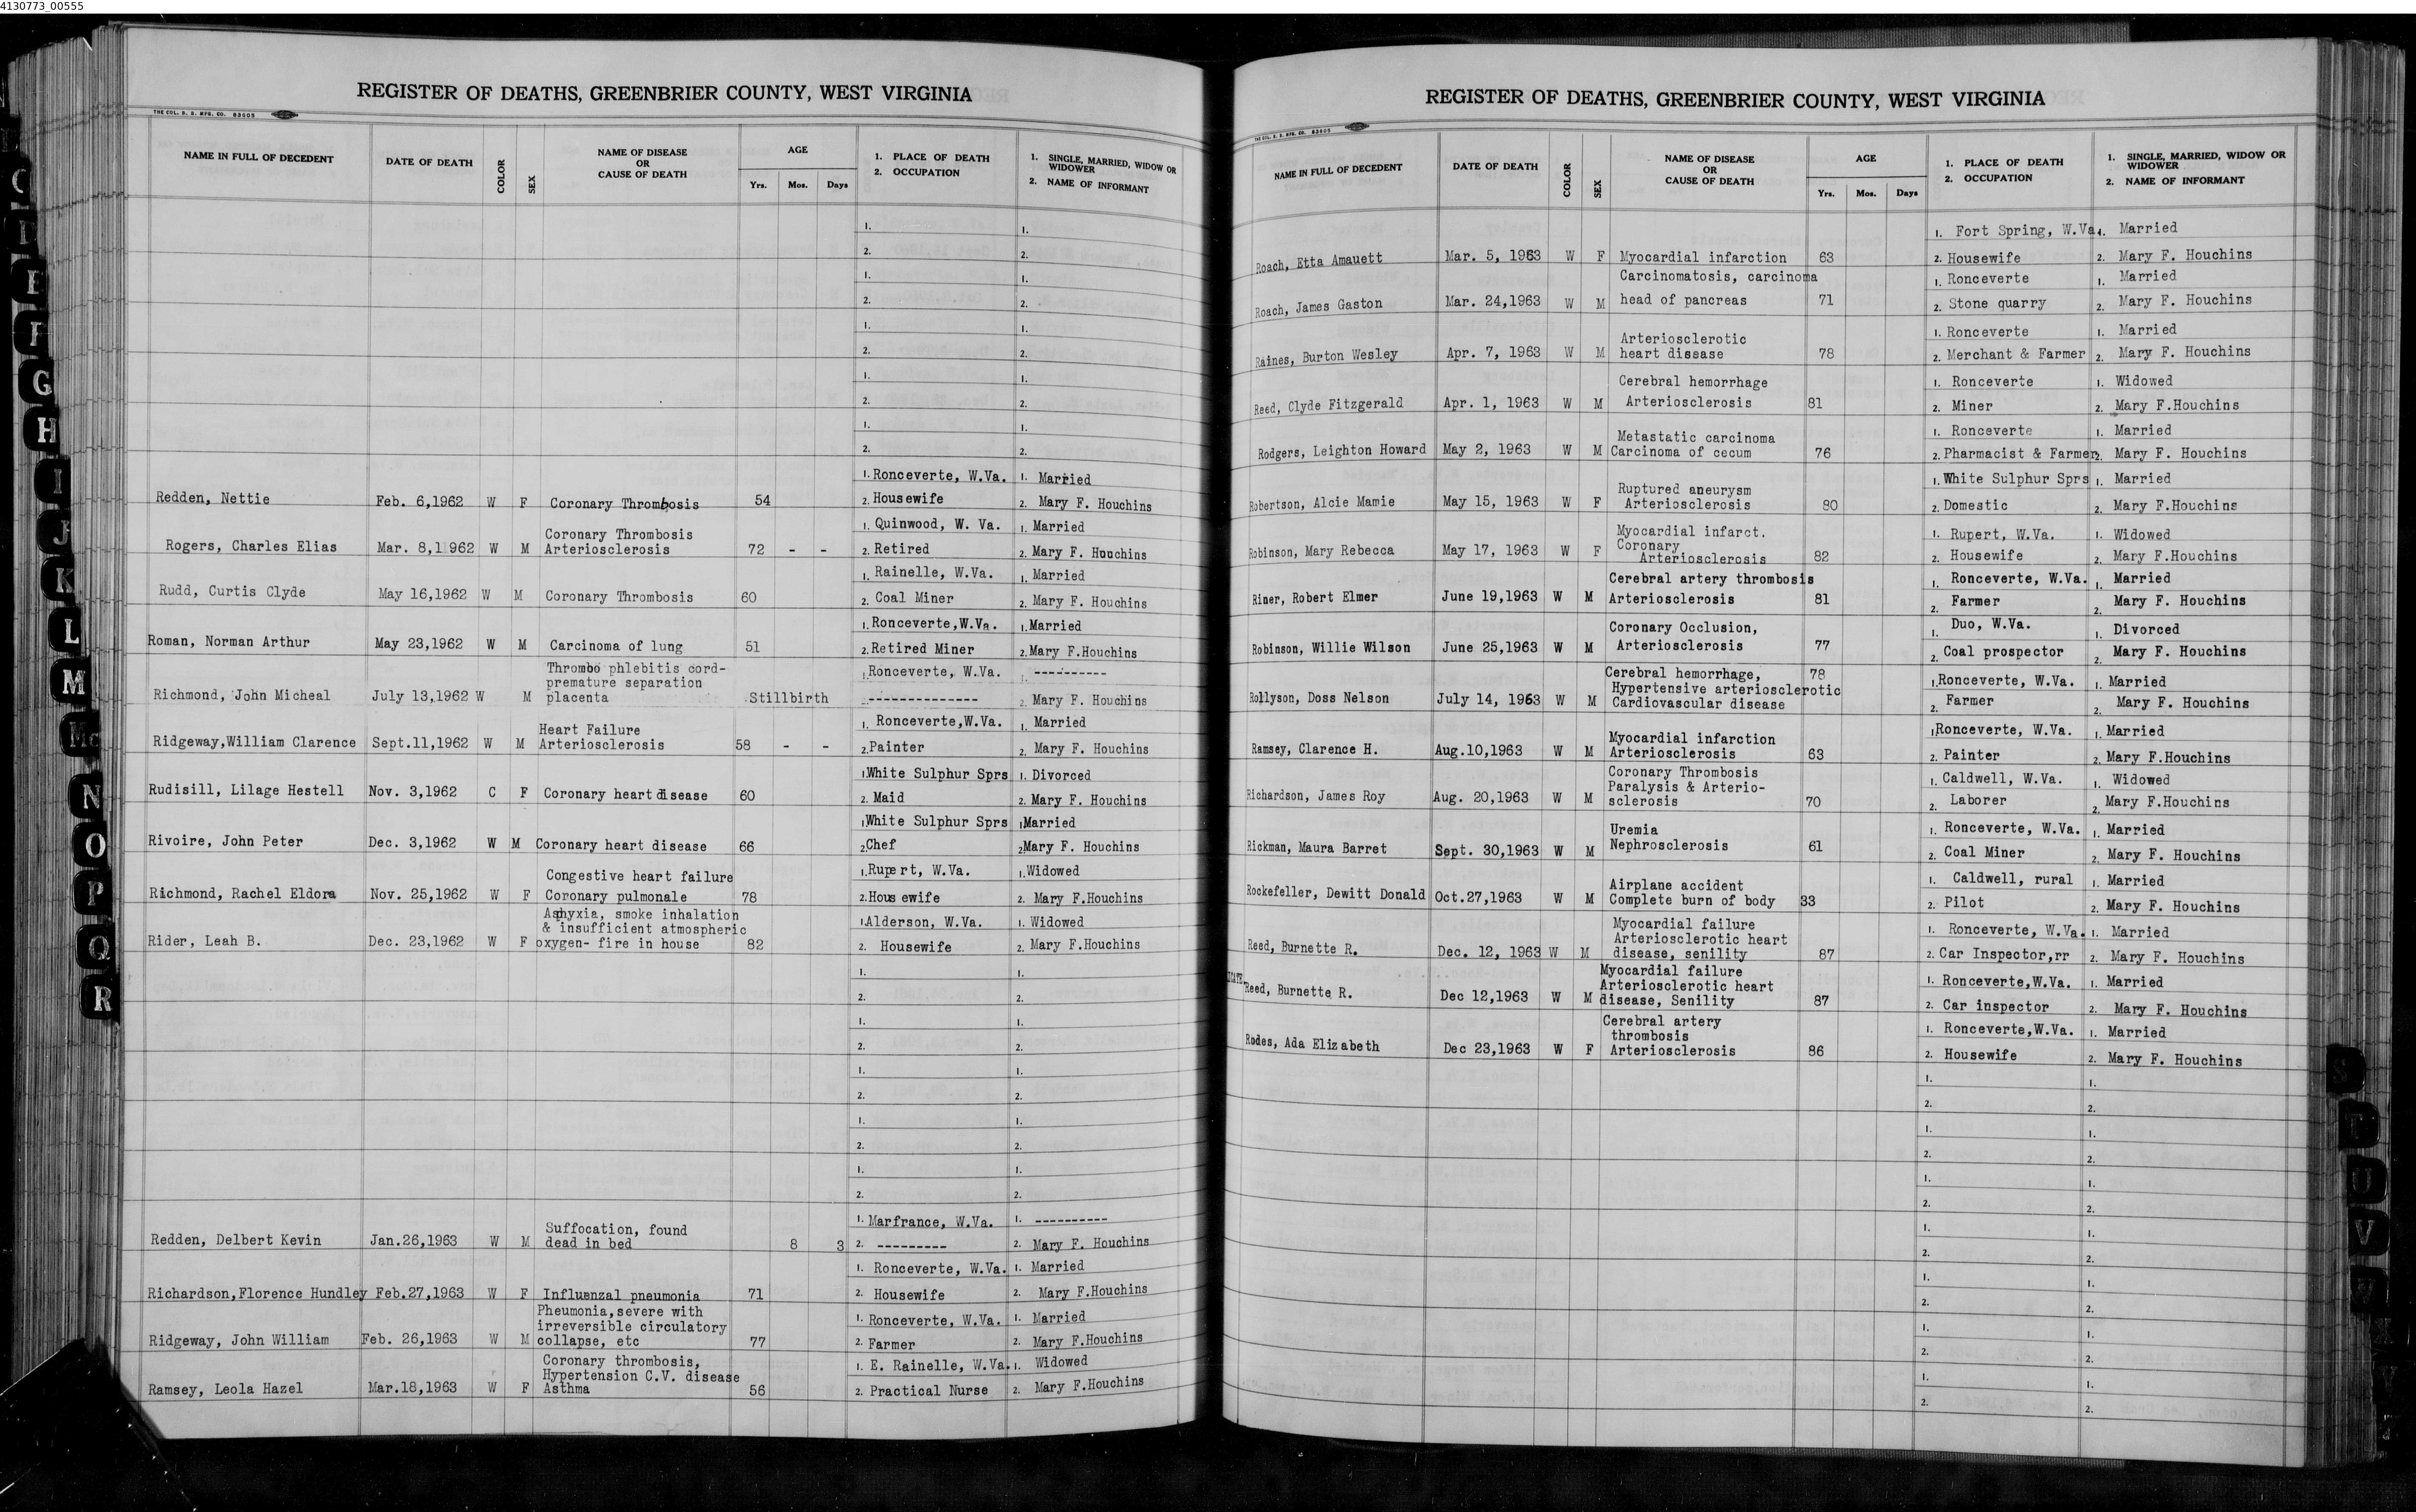 4130773_00555
REGISTER OF DEATHS, GREENBRIER COUNTY, WEST VIRGINIA
THE COL. B. B. MFG. CO. 83605
NAME IN FULL OF DECEDENT DATE OF DEATH COLOR SEX NAME OF DISEASE OR CAUSE OF DEATH AGE Yrs. Mos. Days 1. PLACE OF DEATH 2. OCCUPATION 1. SINGLE, MARRIED, WIDOW OR WIDOWER 2. NAME OF INFORMANT
1. 1.
2. 2.
1. 1.
2. 2.
1. 1.
2. 2.
1. 1.
2. 2.
1. 1.
2. 2.
1. Ronceverte, W.Va. 1. Married
Redden, Nettie Feb. 6,1962 W F Coronary Thrombosis 54 2. Housewife 2. Mary F. Houchins
Coronary Thrombosis 1. Quinwood, W. Va. 1. Married
Rogers, Charles Elias Mar. 8,1962 W M Arteriosclerosis 72 - - 2. Retired 2. Mary F. Houchins
1. Rainelle, W.Va. 1. Married
Rudd, Curtis Clyde May 16,1962 W M Coronary Thrombosis 60 2. Coal Miner 2. Mary F. Houchins
1. Ronceverte,W.Va. 1. Married
Roman, Norman Arthur May 23,1962 W M Carcinoma of lung 51 2. Retired Miner 2. Mary F.Houchins
Thrombo phlebitis cord-
premature separation 1. Ronceverte, W.Va. 1. ----------
Richmond, John Micheal July 13,1962 W M placenta Stillbirth -------------- 2. Mary F. Houchins
Heart Failure 1. Ronceverte,W.Va. 1. Married
Ridgeway,William Clarence Sept.11,1962 W M Arteriosclerosis 58 - - 2. Painter 2. Mary F. Houchins
1. White Sulphur Sprs 1. Divorced
Rudisill, Lilage Hestell Nov. 3,1962 C F Coronary heart disease 60 2. Maid 2. Mary F. Houchins
1. White Sulphur Sprs 1. Married
Rivoire, John Peter Dec. 3,1962 W M Coronary heart disease 66 2. Chef 2. Mary F. Houchins
Congestive heart failure 1. Rupert, W.Va. 1. Widowed
Richmond, Rachel Eldora Nov. 25,1962 W F Coronary pulmonale 78 2. Hous ewife 2. Mary F.Houchins
Asphyxia, smoke inhalation
& insufficient atmospheric 1. Alderson, W.Va. 1. Widowed
Rider, Leah B. Dec. 23,1962 W F oxygen- fire in house 82 2. Housewife 2. Mary F.Houchins
1. 1.
2. 2.
1. 1.
2. 2.
1. 1.
2. 2.
1. 1.
2. 2.
1. 1.
2. 2.
Suffocation, found 1. Marfrance, W.Va. 1. ----------
Redden, Delbert Kevin Jan.26,1963 W M dead in bed 8 3 2. --------- 2. Mary F. Houchins
1. Ronceverte, W.Va. 1. Married
Richardson,Florence Hundley Feb.27,1963 W F Influenzal pneumonia 71 2. Housewife 2. Mary F.Houchins
Pheumonia,severe with
irreversible circulatory 1. Ronceverte, W.Va. 1. Married
Ridgeway, John William Feb. 26,1963 W M collapse, etc 77 2. Farmer 2. Mary F.Houchins
Coronary thrombosis,
Hypertension C.V. disease 1. E. Rainelle, W.Va. 1. Widowed
Ramsey, Leola Hazel Mar.18,1963 W F Asthma 56 2. Practical Nurse 2. Mary F.Houchins
REGISTER OF DEATHS, GREENBRIER COUNTY, WEST VIRGINIA
THE COL. B. B. MFG. CO. 83605
NAME IN FULL OF DECEDENT DATE OF DEATH COLOR SEX NAME OF DISEASE OR CAUSE OF DEATH AGE Yrs. Mos. Days 1. PLACE OF DEATH 2. OCCUPATION 1. SINGLE, MARRIED, WIDOW OR WIDOWER 2. NAME OF INFORMANT
1. Fort Spring, W.Va. 1. Married
Roach, Etta Amauett Mar. 5, 1963 W F Myocardial infarction 63 2. Housewife 2. Mary F. Houchins
Carcinomatosis, carcinoma 1. Ronceverte 1. Married
Roach, James Gaston Mar. 24,1963 W M head of pancreas 71 2. Stone quarry 2. Mary F. Houchins
Arteriosclerotic 1. Ronceverte 1. Married
Raines, Burton Wesley Apr. 7, 1963 W M heart disease 78 2. Merchant & Farmer 2. Mary F. Houchins
Cerebral hemorrhage 1. Ronceverte 1. Widowed
Reed, Clyde Fitzgerald Apr. 1, 1963 W M Arteriosclerosis 81 2. Miner 2. Mary F.Houchins
Metastatic carcinoma 1. Ronceverte 1. Married
Rodgers, Leighton Howard May 2, 1963 W M Carcinoma of cecum 76 2. Pharmacist & Farmer 2. Mary F. Houchins
Ruptured aneurysm 1. White Sulphur Sprs 1. Married
Robertson, Alcie Mamie May 15, 1963 W F Arteriosclerosis 80 2. Domestic 2. Mary F.Houchins
Myocardial infarct.
Coronary 1. Rupert, W.Va. 1. Widowed
Robinson, Mary Rebecca May 17, 1963 W F Arteriosclerosis 82 2. Housewife 2. Mary F.Houchins
Cerebral artery thrombosis 1. Ronceverte, W.Va. 1. Married
Riner, Robert Elmer June 19,1963 W M Arteriosclerosis 81 2. Farmer 2. Mary F. Houchins
Coronary Occlusion, 1. Duo, W.Va. 1. Divorced
Robinson, Willie Wilson June 25,1963 W M Arteriosclerosis 77 2. Coal prospector 2. Mary F. Houchins
Cerebral hemorrhage, 78
Hypertensive arteriosclerotic 1. Ronceverte, W.Va. 1. Married
Rollyson, Doss Nelson July 14, 1963 W M Cardiovascular disease 2. Farmer 2. Mary F. Houchins
Myocardial infarction 1. Ronceverte, W.Va. 1. Married
Ramsey, Clarence H. Aug.10,1963 W M Arteriosclerosis 63 2. Painter 2. Mary F.Houchins
Coronary Thrombosis
Paralysis & Arterio- 1. Caldwell, W.Va. 1. Widowed
Richardson, James Roy Aug. 20,1963 W M sclerosis 70 2. Laborer 2. Mary F.Houchins
Uremia 1. Ronceverte, W.Va. 1. Married
Rickman, Maura Barret Sept. 30,1963 W M Nephrosclerosis 61 2. Coal Miner 2. Mary F. Houchins
Airplane accident 1. Caldwell, rural 1. Married
Rockefeller, Dewitt Donald Oct.27,1963 W M Complete burn of body 33 2. Pilot 2. Mary F. Houchins
Myocardial failure
Arteriosclerotic heart 1. Ronceverte, W.Va. 1. Married
Reed, Burnette R. Dec. 12, 1963 W M disease, senility 87 2. Car Inspector,rr 2. Mary F. Houchins
Myocardial failure
Arteriosclerotic heart 1. Ronceverte,W.Va. 1. Married
Reed, Burnette R. Dec 12,1963 W M disease, Senility 87 2. Car inspector 2. Mary F. Houchins
Cerebral artery
thrombosis 1. Ronceverte,W.Va. 1. Married
Rodes, Ada Elizabeth Dec 23,1963 W F Arteriosclerosis 86 2. Housewife 2. Mary F. Houchins
1. 1.
2. 2.
1. 1.
2. 2.
1. 1.
2. 2.
1. 1.
2. 2.
1. 1.
2. 2.
1. 1.
2. 2.
1. 1.
2. 2.
E
F
G
H
I
J
K
L
M
Mc
N
O
P
Q
R
S
T
U
V
W